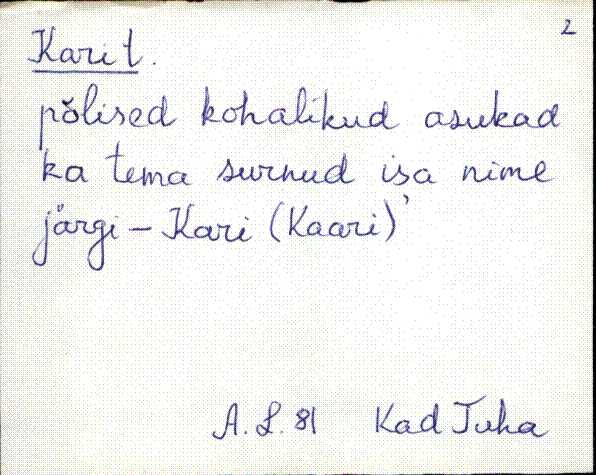 2
Karit.
põlised kohalikud asukad
ka tema surnud isa nime
järgi – Kari (Kaari)'
A. L. 81 Kad Tuha